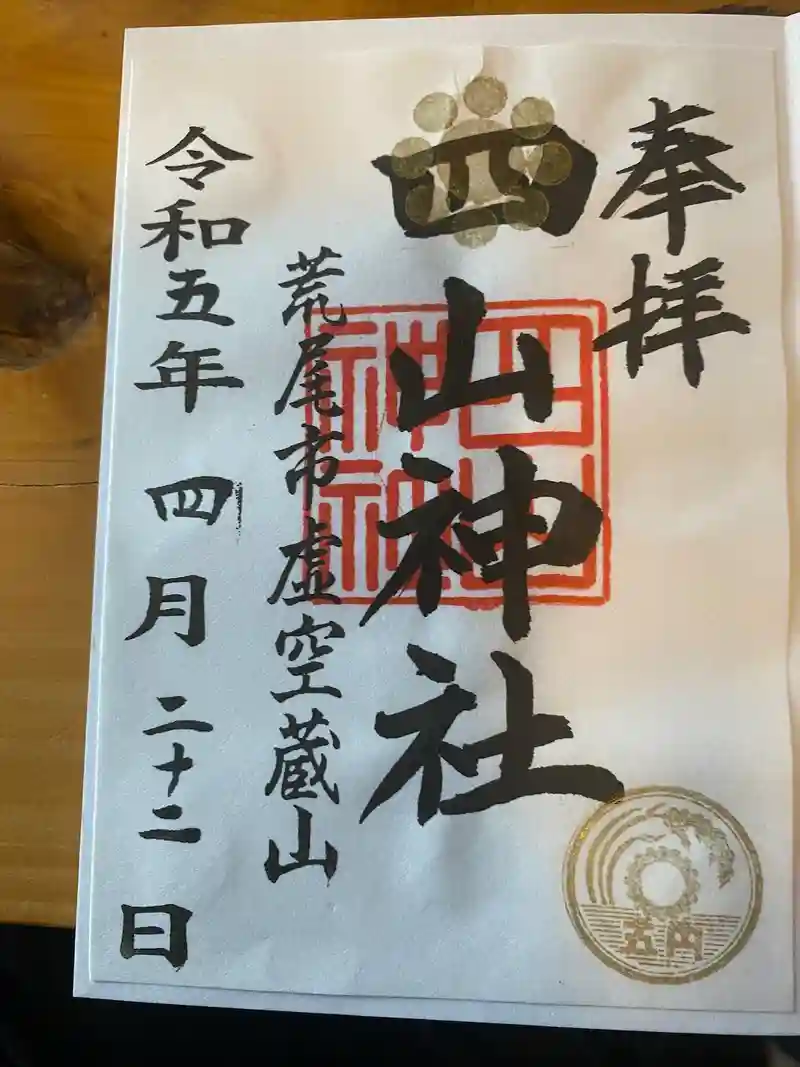 奉拝
四山神社
四山神社
荒尾市虚空蔵山
令和五年 四月 二十二日
五円